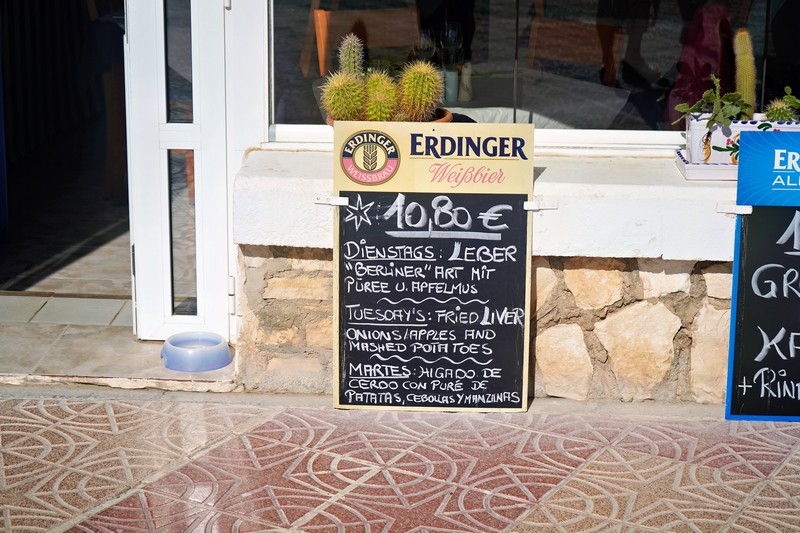 ERDINGER
WEISSBRÄU
ERDINGER
Weißbier
10,80 €
DIENSTAGS: LEBER
"BERLINER" ART MIT
PÜREE U. APFELMUS
TUESDAY'S: FRIED LIVER
ONIONS/APPLES AND
MASHED POTATOES
MARTES: HIGADO DE
CERDO CON PURÉ DE
PATATAS, CEBOLLAS Y MANZANAS